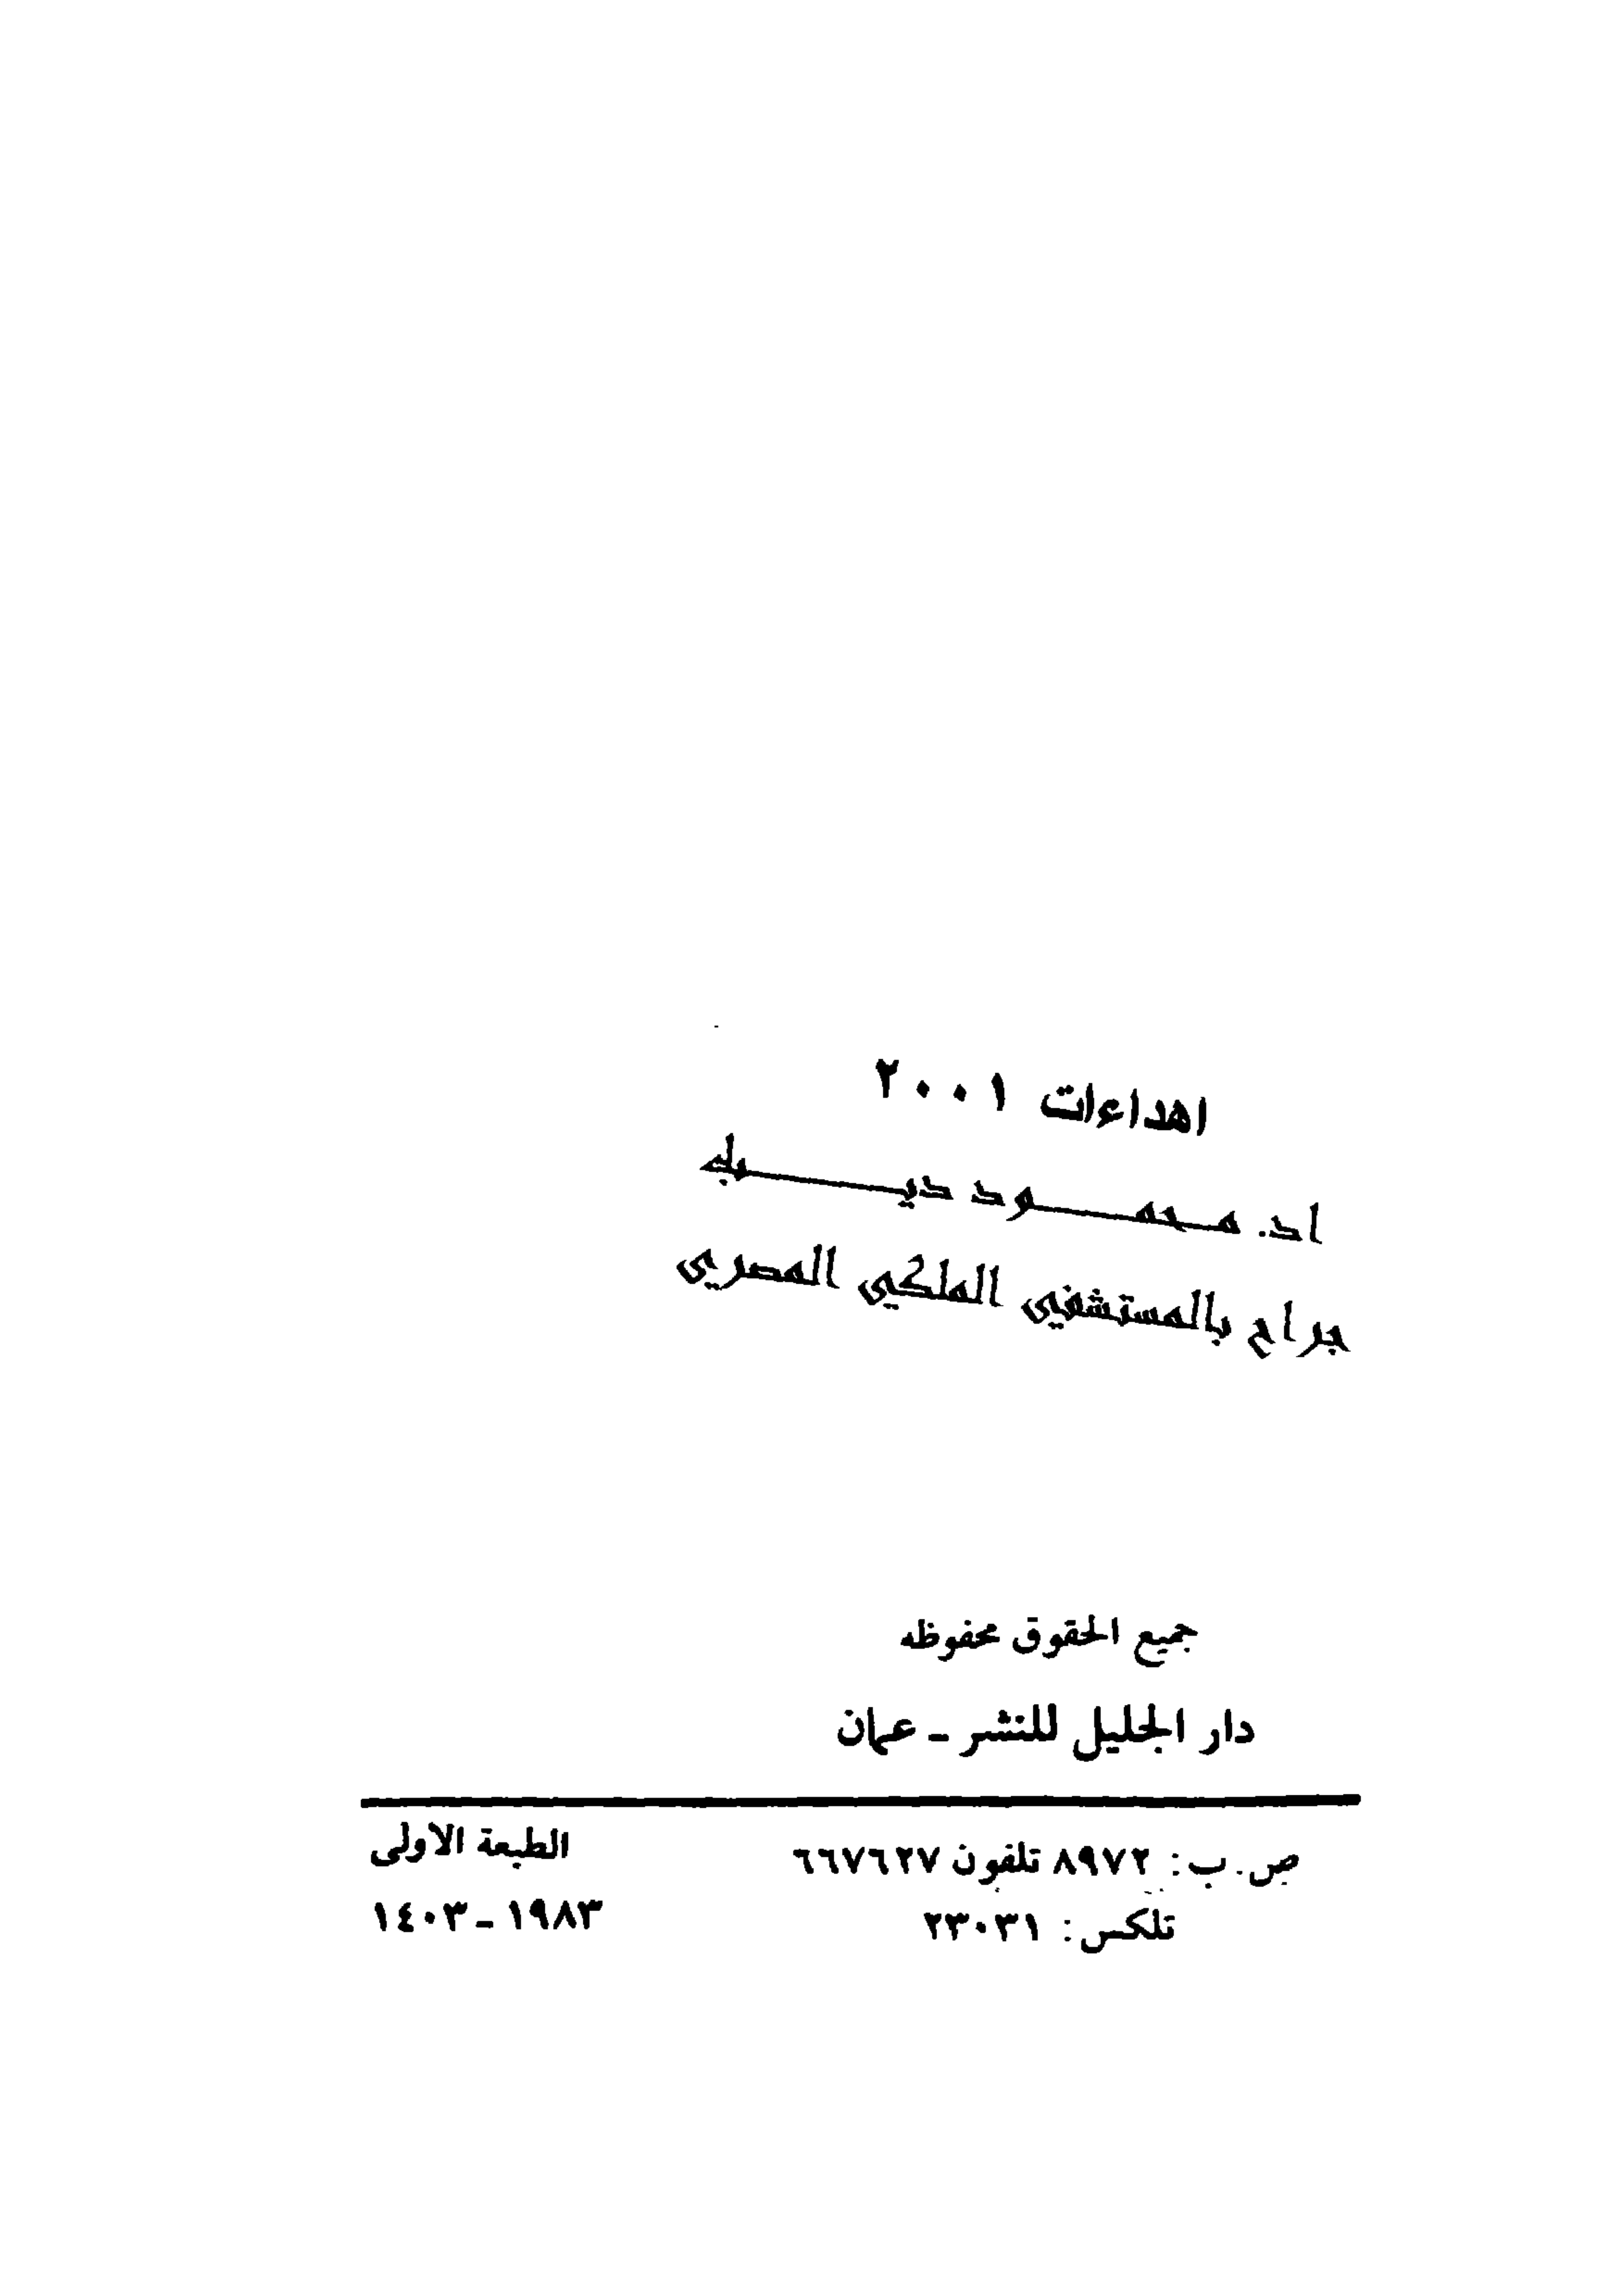 اهداءات ٢٠٠١
اد. محمود دياب
جراح بالمستشفي الملكي المصري
جميع الحقوق محفوظه
دار الجليل للنشر ـ عمان
ص.ب: ٨٩٧٢ تلفون ٦٦٧٦٢٧
تلكس: ٢٣٠٣١
الطبعة الاولى
١٤٠٣ـ١٩٨٣